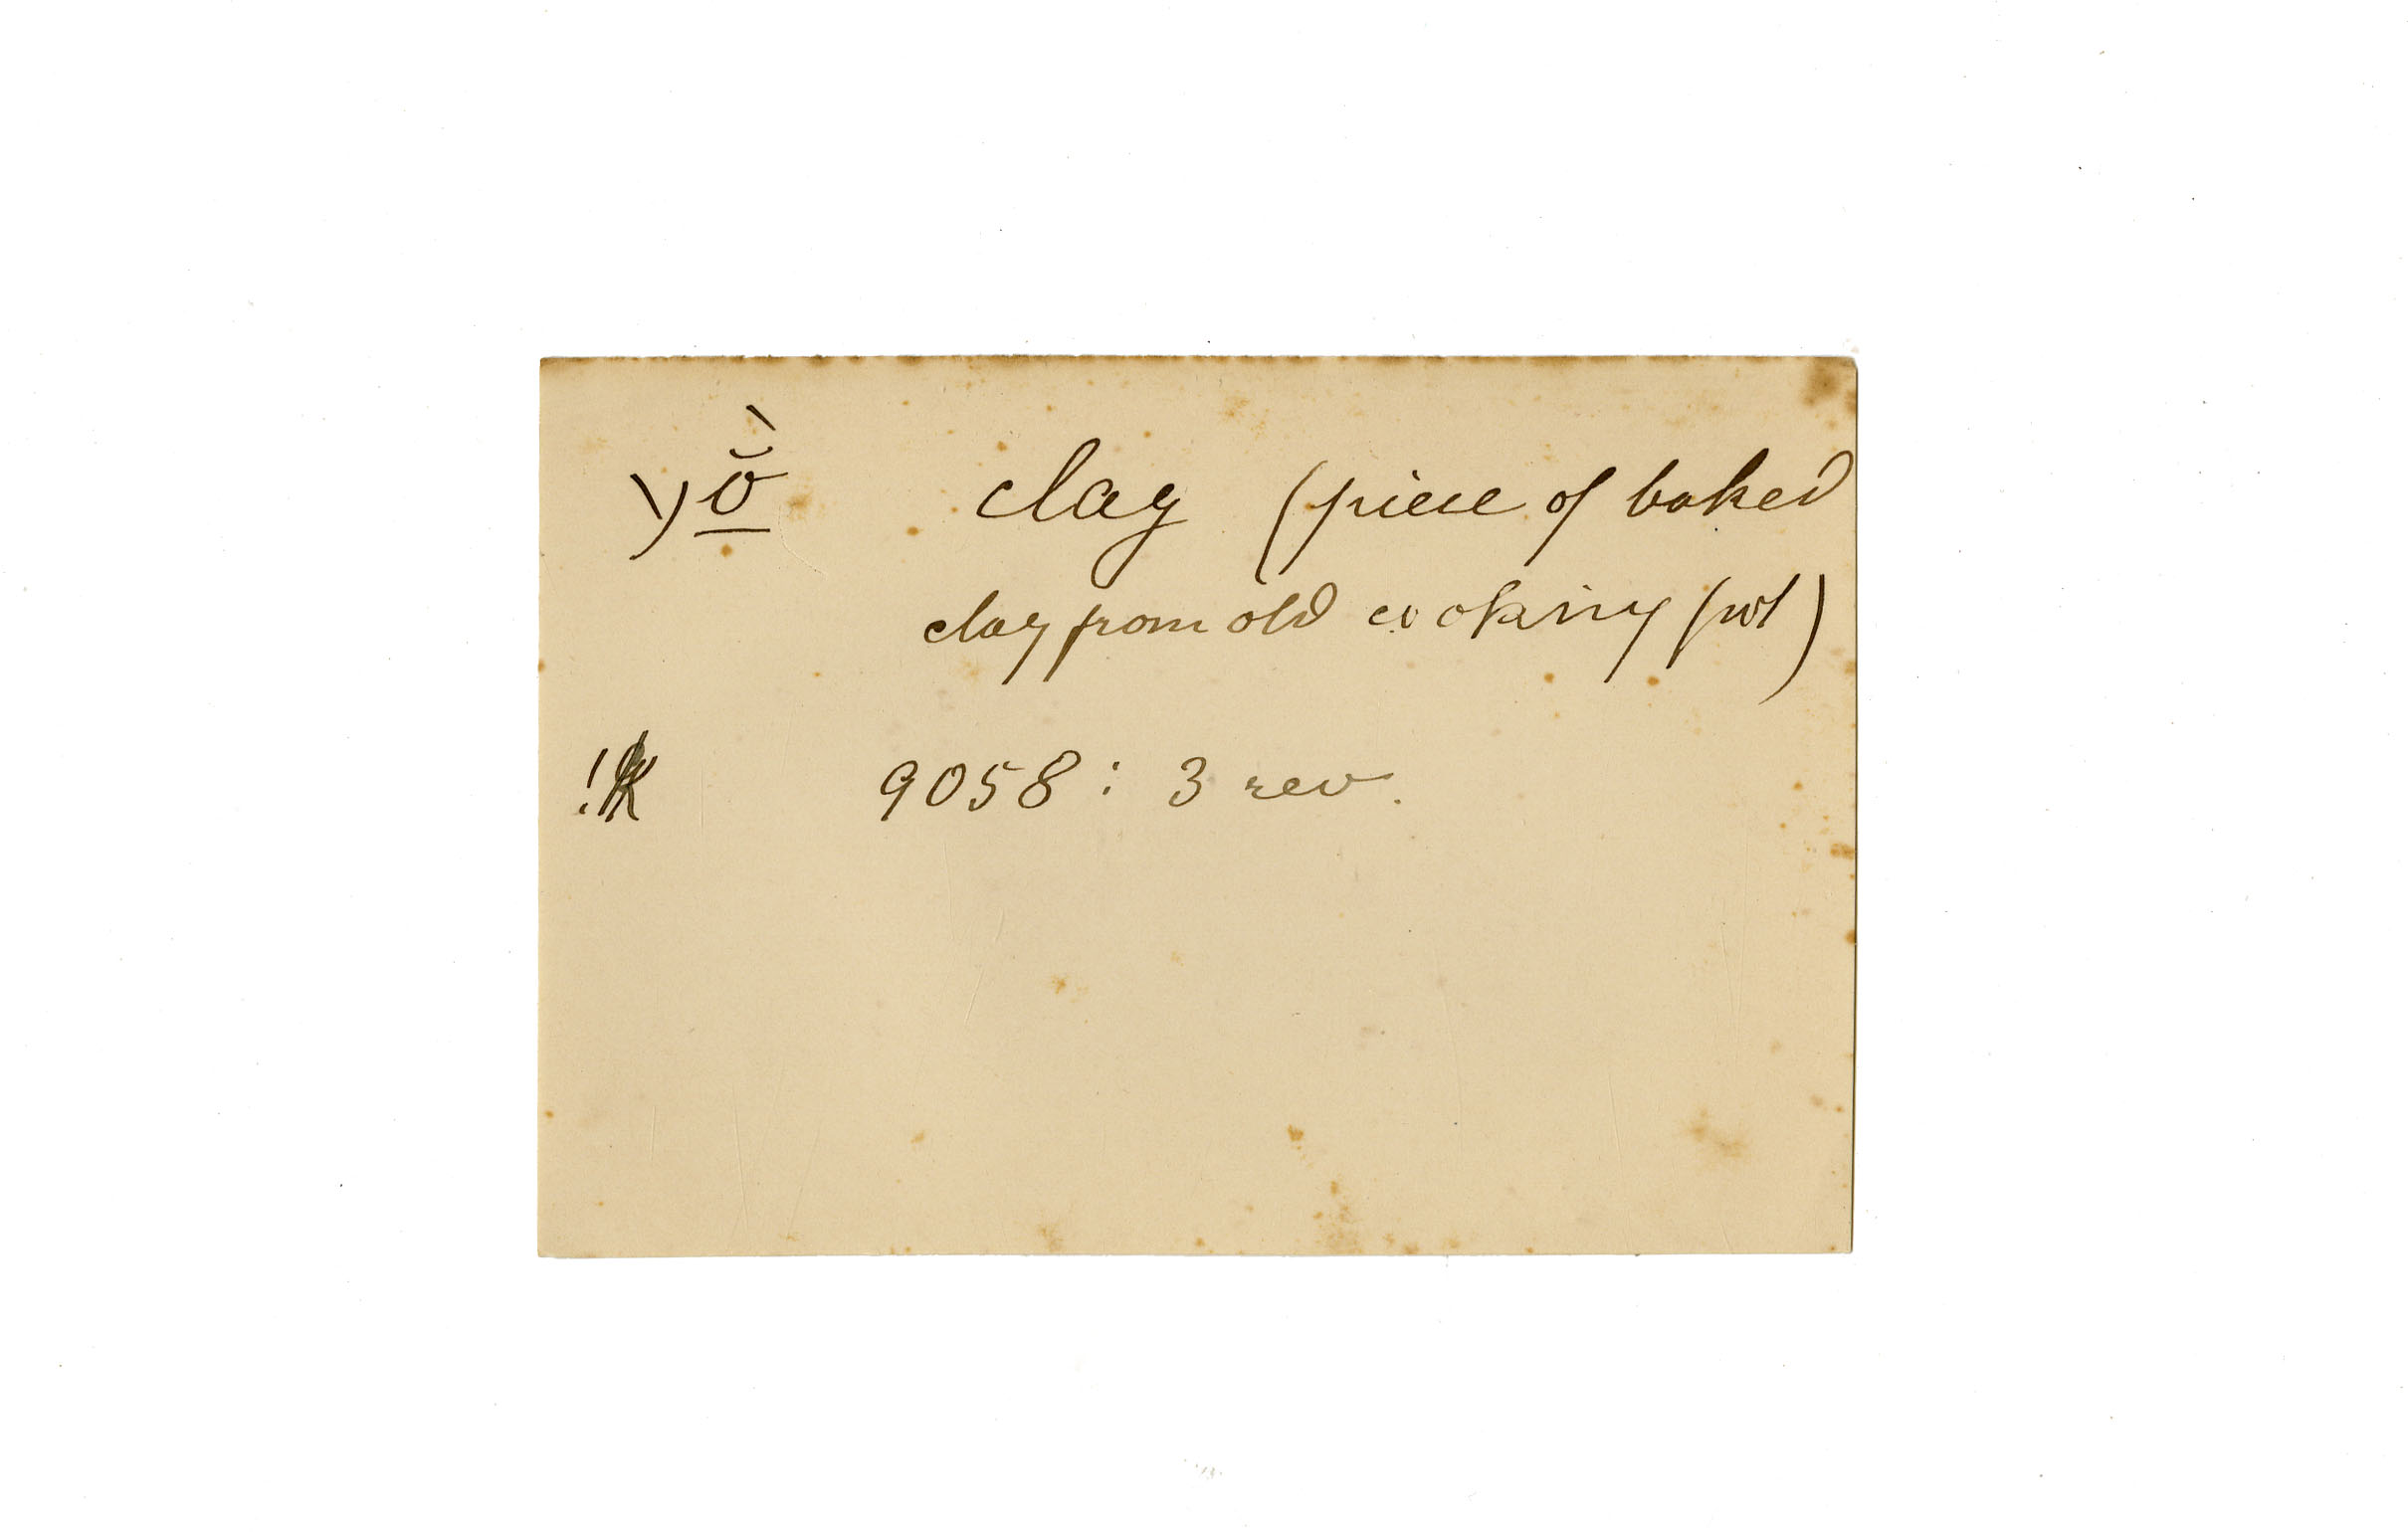 yŏ̱̀ clay (piece of baked
clay from old cooking pot)
!k 9058 : 3 rev.